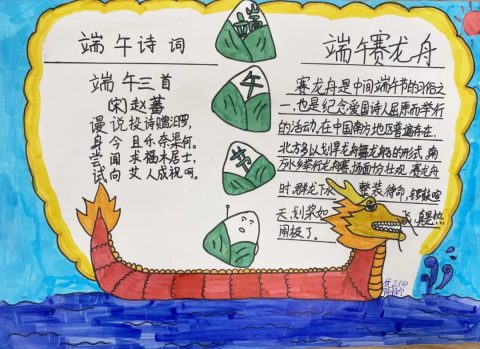 端午诗词
端午三首
(宋)赵蕃
谩说投诗赠汨罗,
身今且乐奈渠何。
尝闻求福木居士,
试向艾人成祝呵。
端
午
节
端午赛龙舟
赛龙舟是中间端午节的习俗之
一,也是纪念爱国诗人屈原而举行
的活动。在中国南方地区普遍存在,
北方多以划旱龙舟舞龙船的形式,南
方水乡举行龙舟赛,场面十分壮观,赛龙舟
时,群龙下水 整装待命,锣鼓喧
天,划桨如飞,真是热
闹极了。